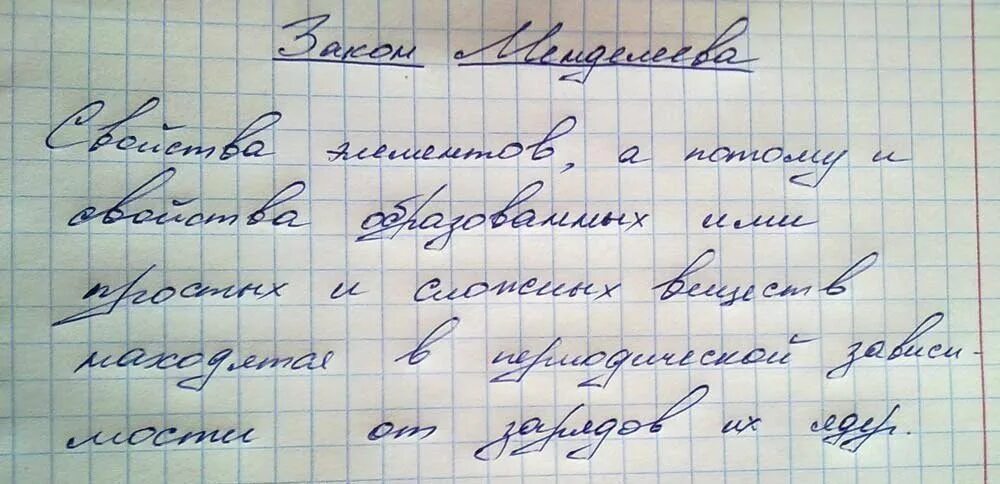 Закон Менделеева
Свойства элементов, а потому и
свойства образованных ими
простых и сложных веществ
находятся в периодической зависи-
мости от зарядов их ядер.